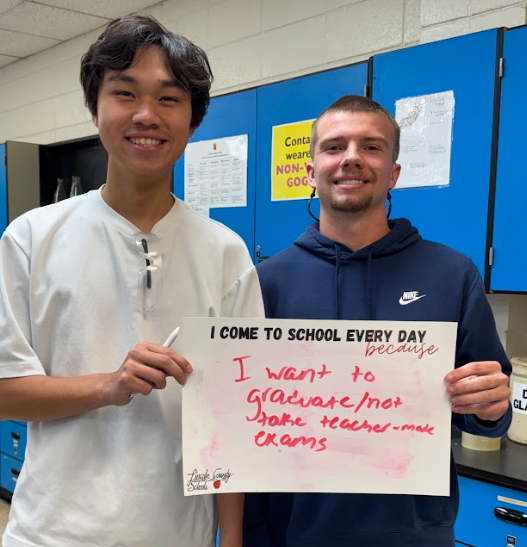 Conta
weare
NON-V
GOGG
NIKE
I COME TO SCHOOL EVERY DAY
because
I want to
graduate/not
take teacher-made
exams
Lincoln County
Schools
D
GLA